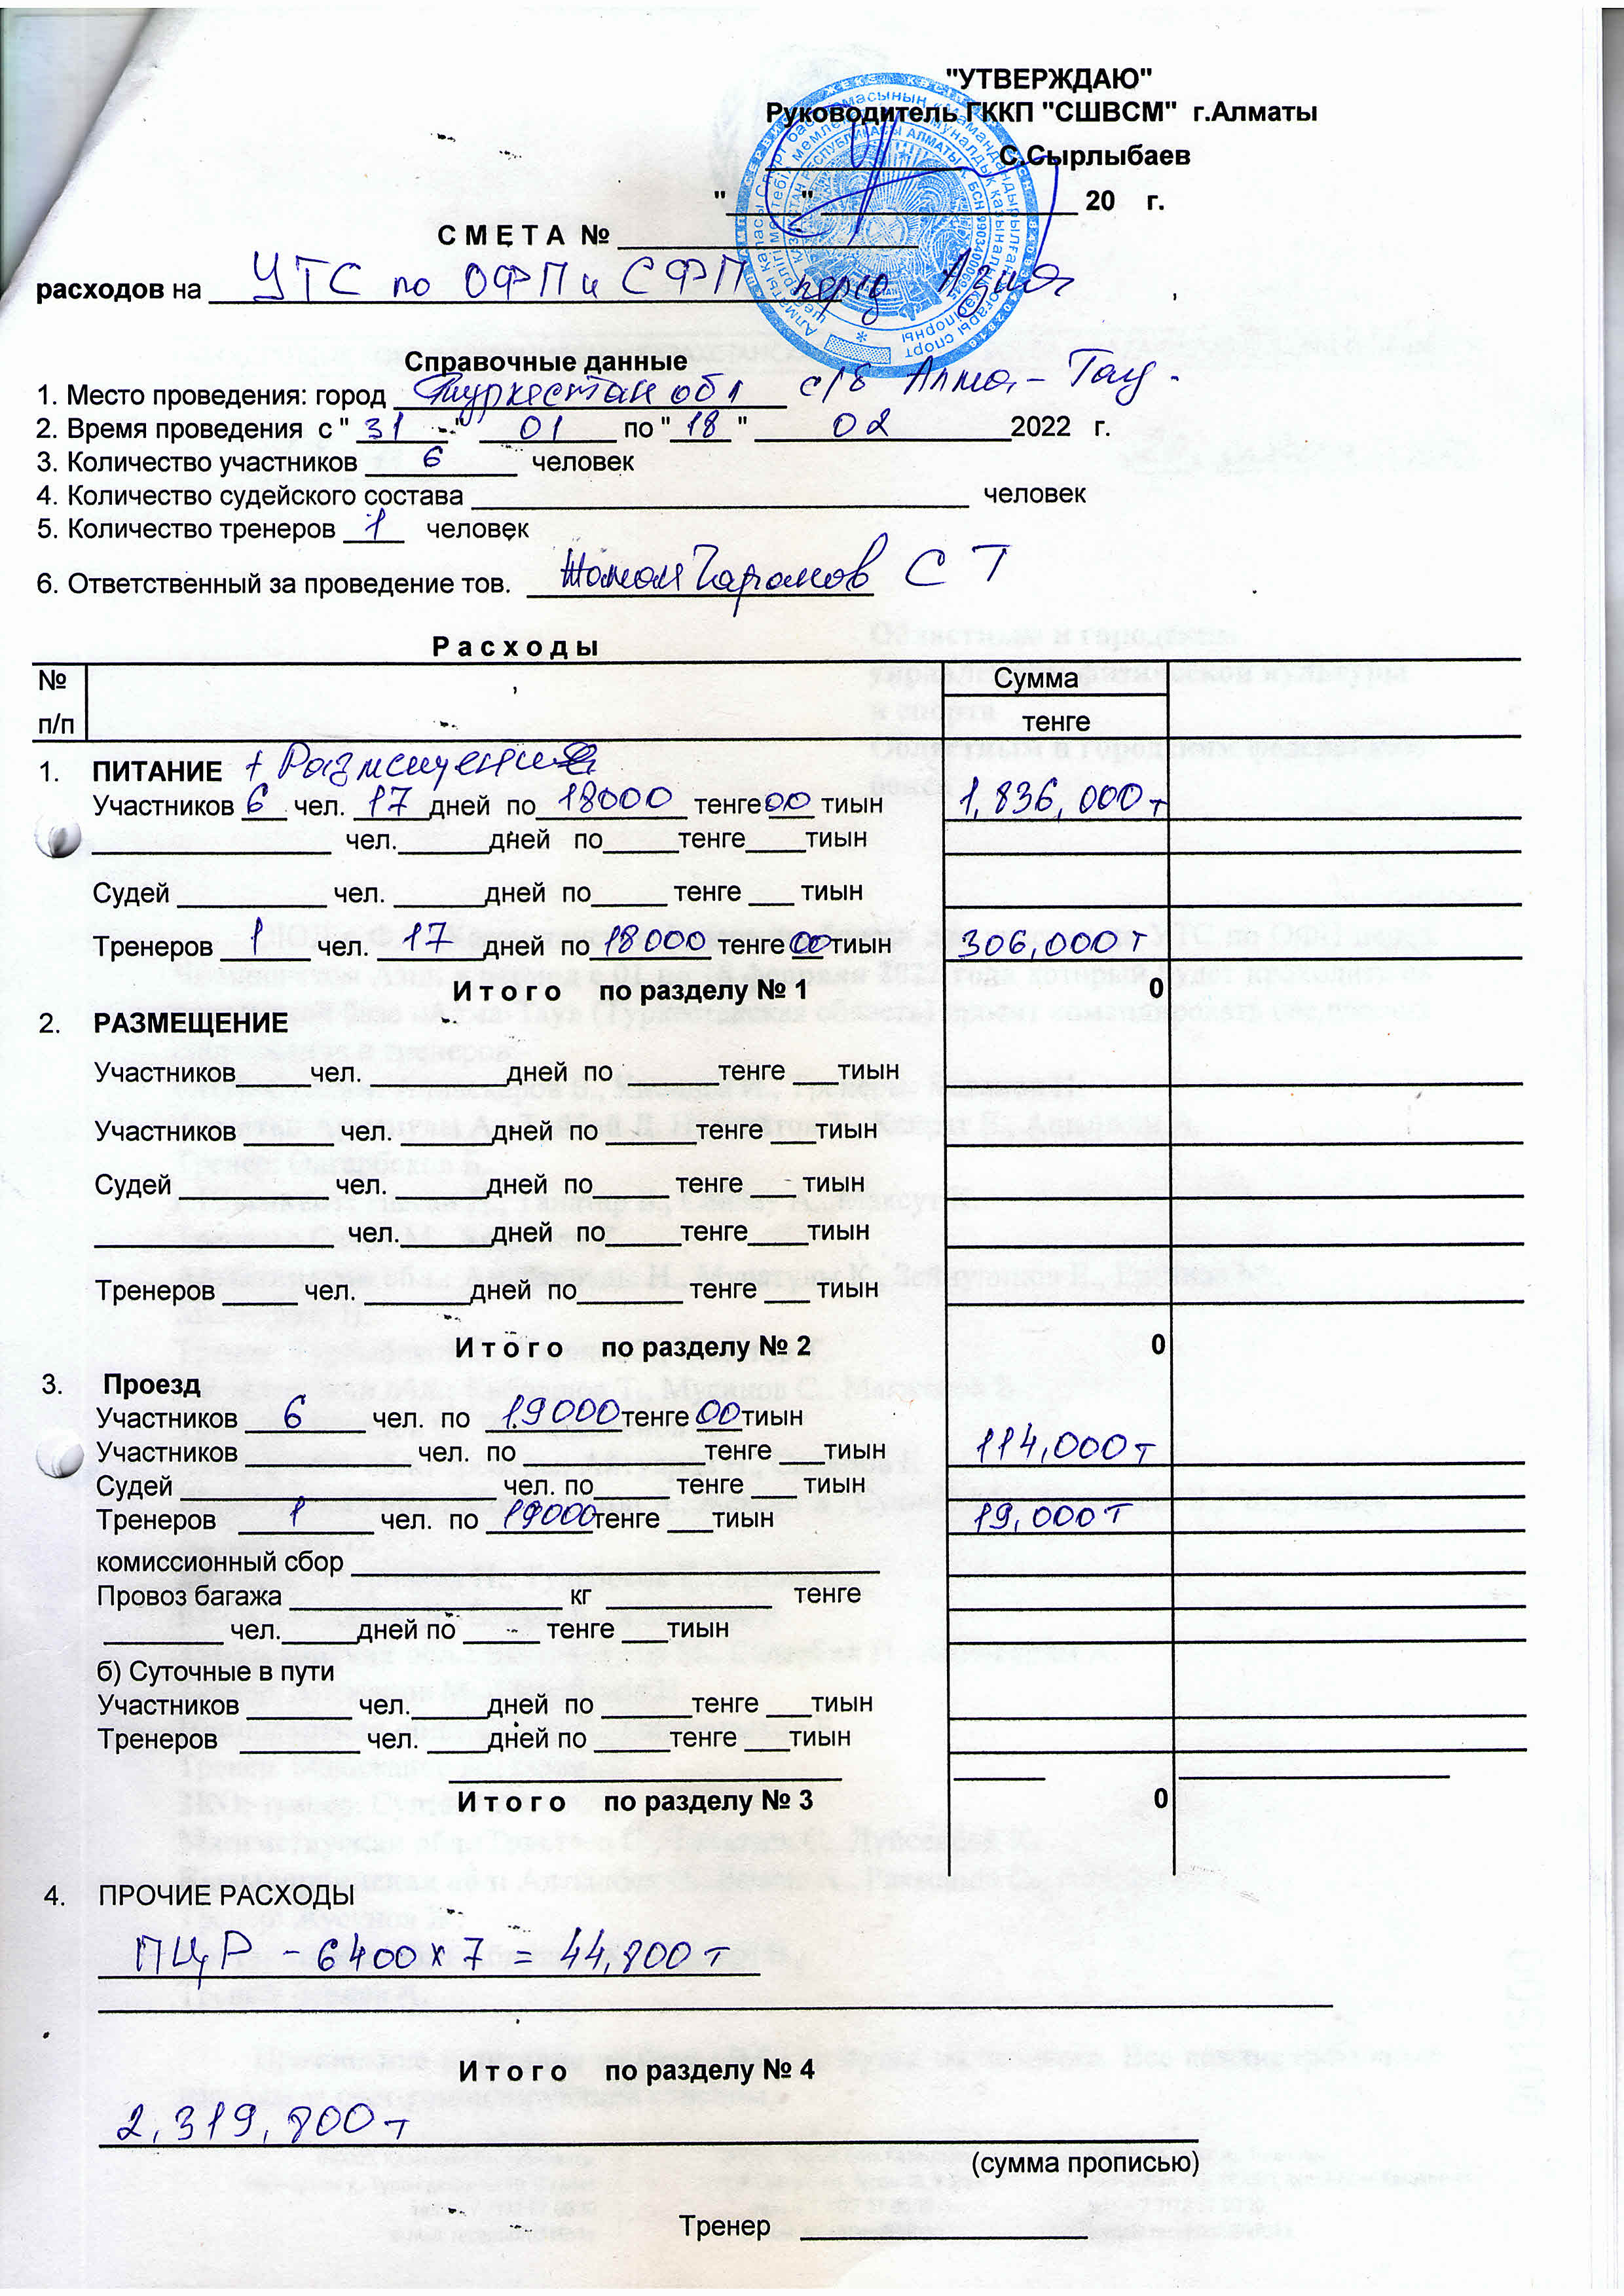 "УТВЕРЖДАЮ"
Руководитель ГККП "СШВСМ" г.Алматы
С.Сырлыбаев
"_____" _________________ 20 г.
С М Е Т А № ____________________
расходов на УТС по ОФП и СФП перед Азией
Справочные данные
1. Место проведения: город Туркестан обл с/б Алма-Тау.
2. Время проведения с " 31 " 01 по " 18 " 02 2022 г.
3. Количество участников 6 человек
4. Количество судейского состава _________________________________ человек
5. Количество тренеров 1 человек
6. Ответственный за проведение тов. С Т
Р а с х о д ы
№ п/п Сумма тенге
1. ПИТАНИЕ + Размещение
Участников 6 чел. 17 дней по 18000 тенге 00 тиын 1,836,000 т
________________ чел.______дней по_____тенге____тиын
Судей __________ чел. ______дней по_____ тенге ___ тиын
Тренеров 1 чел. 17 дней по 18000 тенге 00 тиын 306,000 т
И т о г о по разделу № 1 0
2. РАЗМЕЩЕНИЕ
Участников_____чел. _________дней по ______тенге ___тиын
Участников ______ чел. ______дней по ______тенге ___тиын
Судей __________ чел. ______дней по_____ тенге ___ тиын
________________ чел.______дней по_____тенге____тиын
Тренеров _____ чел. _______дней по_______ тенге ___ тиын
И т о г о по разделу № 2 0
3. Проезд
Участников 6 чел. по 19000 тенге 00 тиын
Участников ___________чел. по ____________тенге ___тиын 114,000 т
Судей _____________________ чел. по_____ тенге ___ тиын
Тренеров 1 чел. по 19000 тенге ___тиын 19,000 т
комиссионный сбор ___________________________________
Провоз багажа __________________ кг ___________ тенге
________ чел._____дней по _____ тенге ___тиын
б) Суточные в пути
Участников _______ чел._____дней по ______тенге ___тиын
Тренеров ________ чел. ____дней по _____тенге ___тиын
И т о г о по разделу № 3 0
4. ПРОЧИЕ РАСХОДЫ
ПЦР - 6400 x 7 = 44,800 т
И т о г о по разделу № 4
2,319,800 т
(сумма прописью)
Тренер ___________________